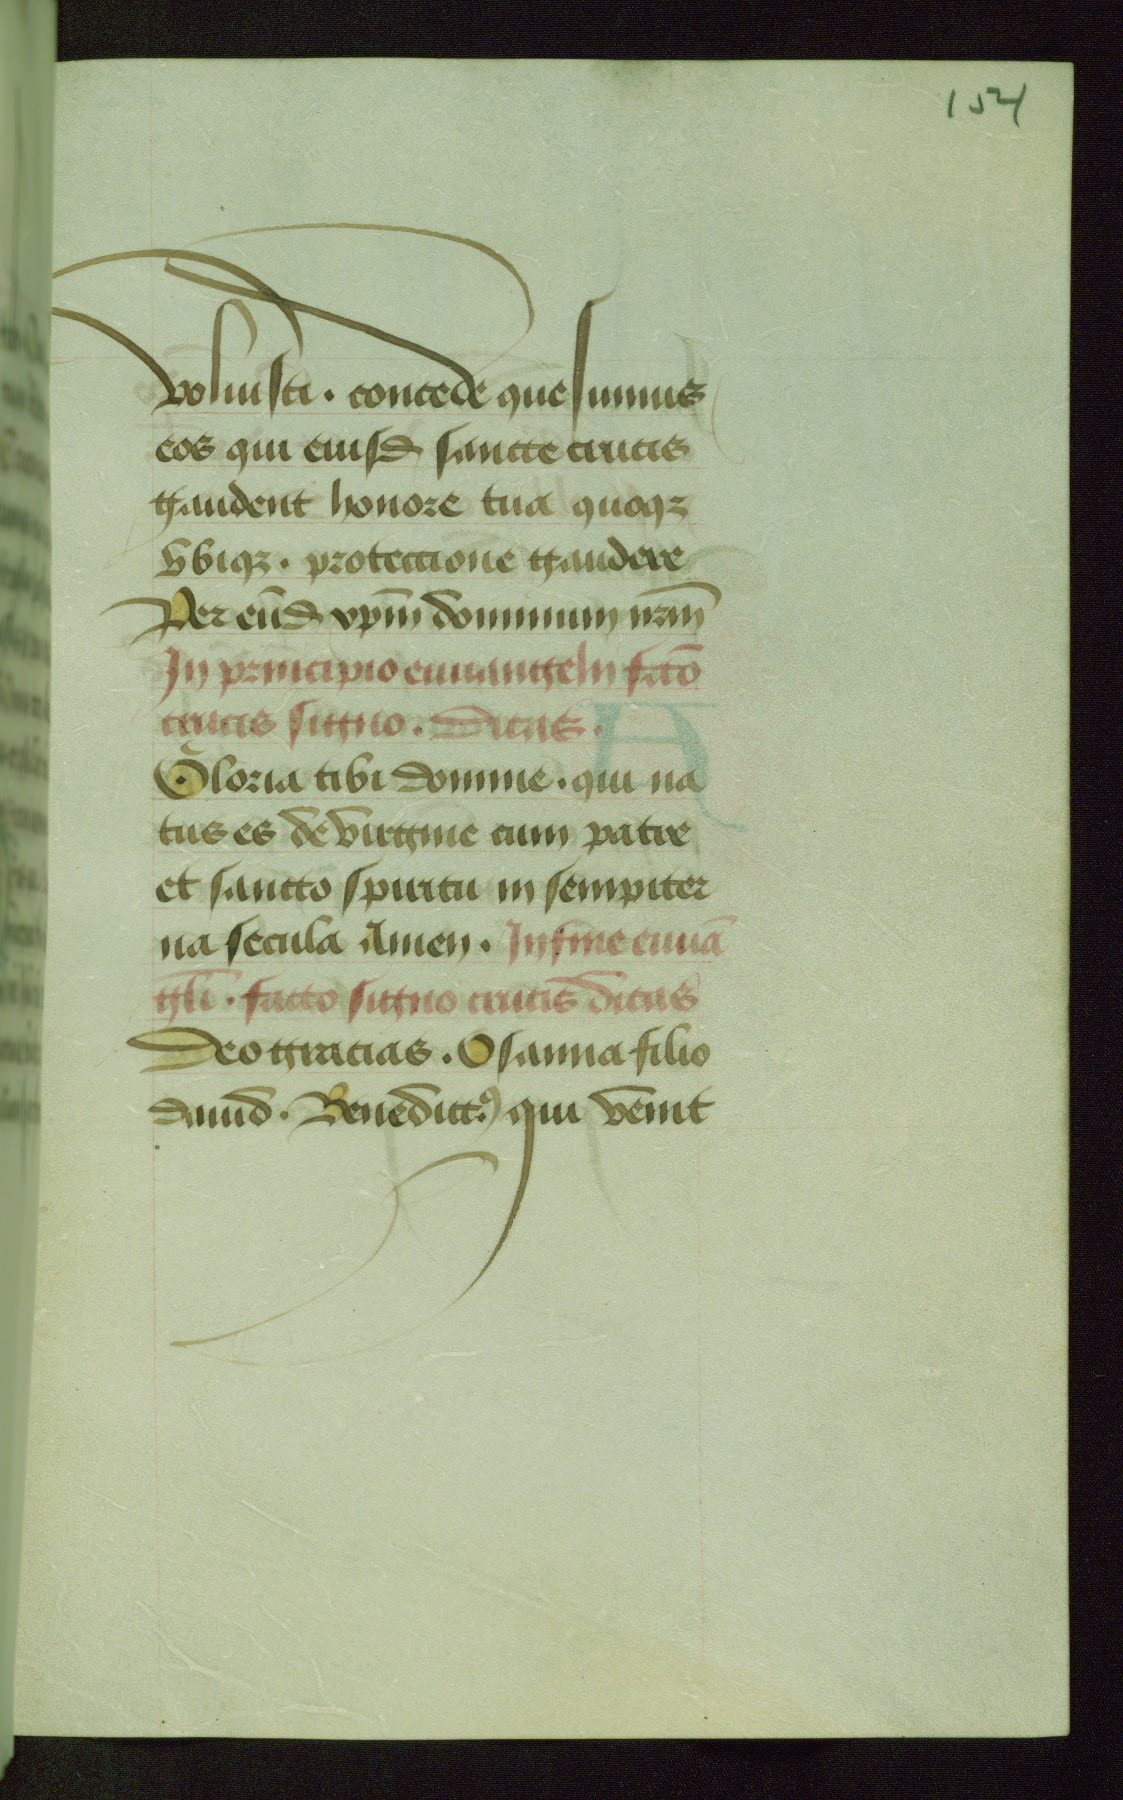 154
voluisti · concede quesumus
eos qui eiusd̄ sancte crucis
gaudent honore tua quoqꝫ
vbiqꝫ · protectione gaudere
Per eūd̄ xp̄m dominum nr̄m
In principio euuangelij fcō
crucis signo · Dicas ·
Gloria tibi domine · qui na
tus es de virgine cum patre
et sancto spiritu in sempiter
na secula Amen · In fine euuā
gl̄i · facto signo crucis dicas
Deo gracias · Osanna filio
dauid · Benedictꝰ qui venit